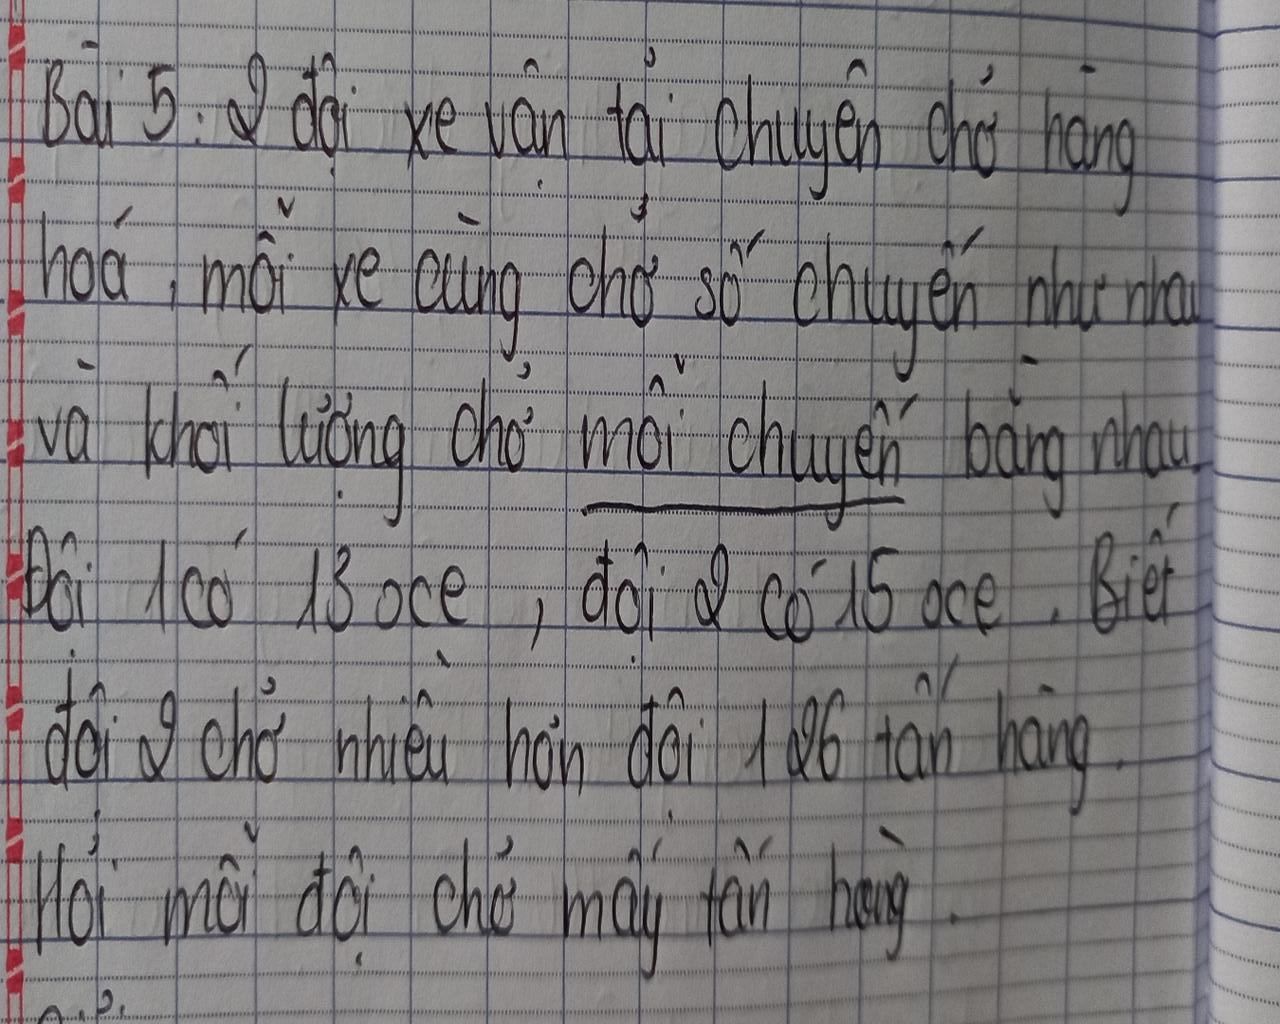 Bài 5: 2 đội xe vận tải chuyên chở hàng
hoá, mỗi xe cùng chở số chuyến như nhau
và khối lượng chở mỗi chuyến bằng nhau
Đội 1 có 13 xe, đội 2 có 15 xe. Biết
đội 2 chở nhiều hơn đội 1 26 tấn hàng.
Hỏi mỗi đội chở mấy tấn hàng.